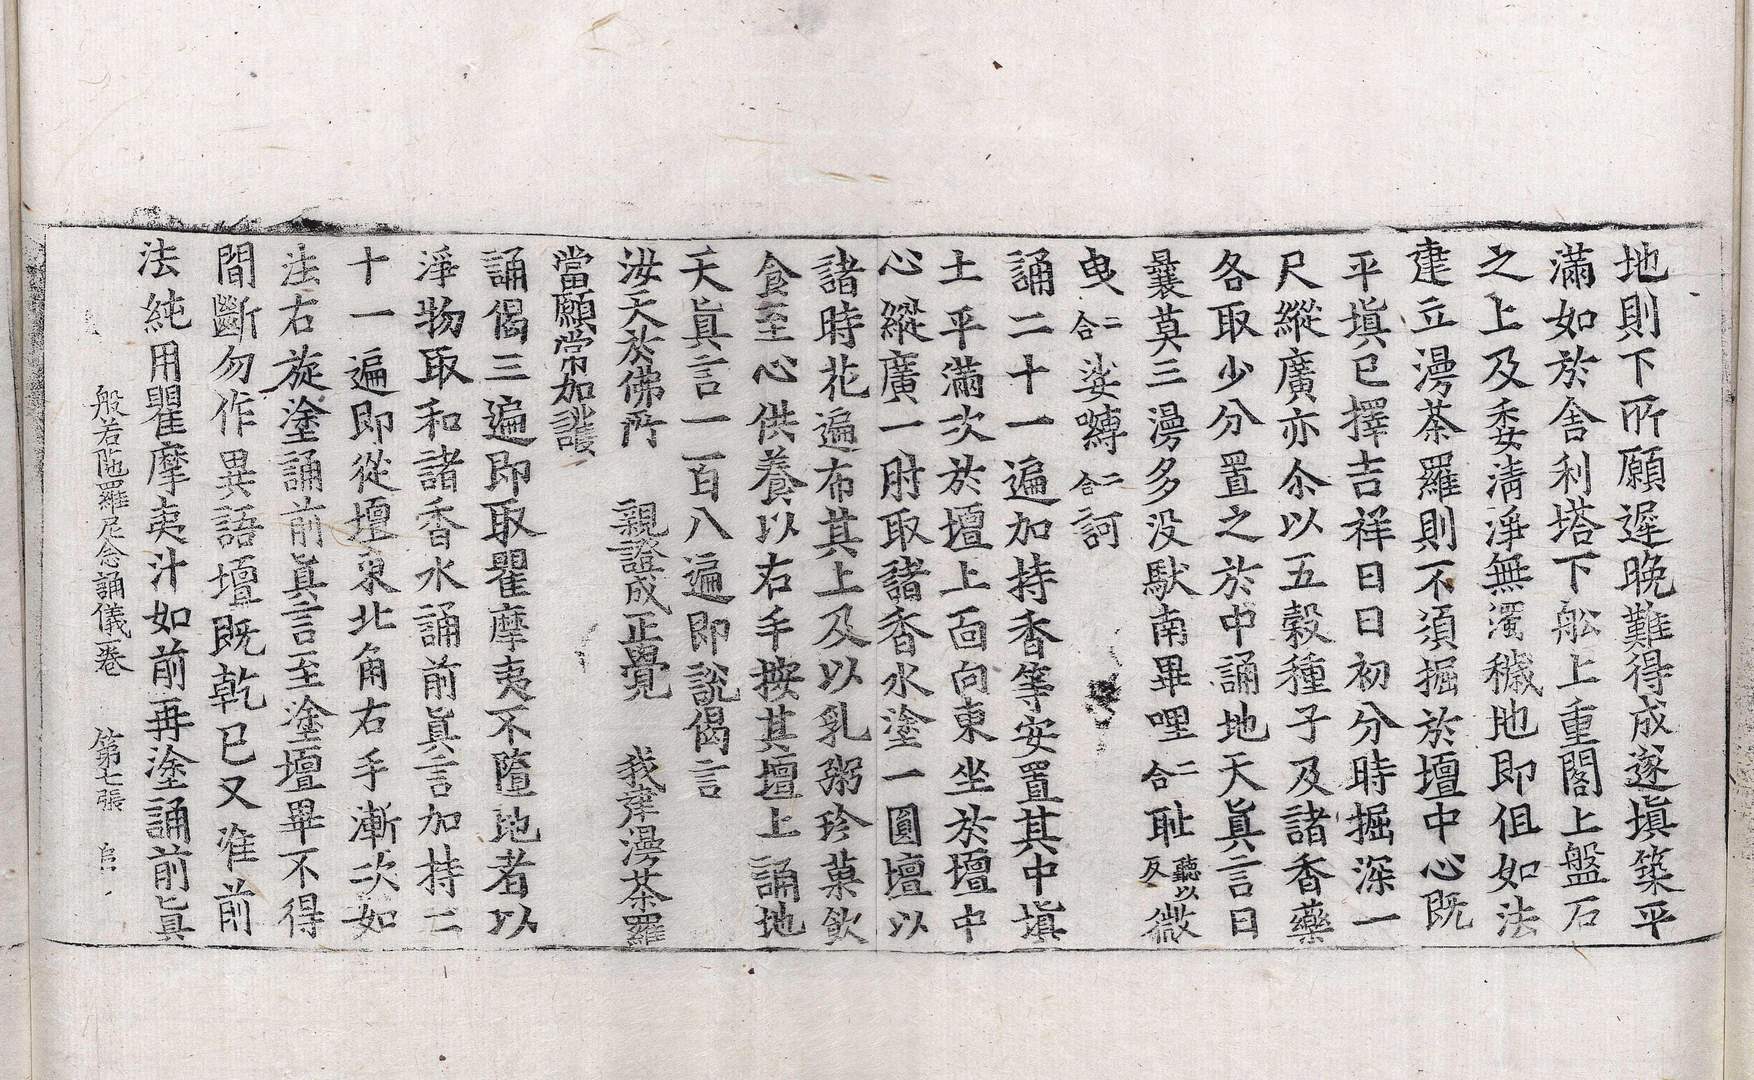 地則下所願遲晚難得成遂塡築平
滿如於舍利塔下舩上重閣上盤石
之上及委清淨無濁穢地即但如法
建立漫茶羅則不須掘於壇中心旣
平塡已擇吉祥日日初分時掘深一
尺縱廣亦尒以五穀種子及諸香藥
各取少分置之於中誦地天眞言曰
曩莫三漫多没馱南畢哩二合耻聽以反微
曳二合娑嚩二合訶
誦二十一遍加持香等安置其中塡
土平滿次於壇上面向東坐於壇中
心縱廣一肘取諸香水塗一圓壇以
諸時花遍布其上及以乳粥珍菓飮
食至心供養以右手按其壇上誦地
天眞言一百八遍即說偈言
汝天於佛所　親證成正覺　我此漫茶羅
當願常加護
誦偈三遍即取瞿摩夷不墮地者以
淨物取和諸香水誦前眞言加持二
十一遍即從壇東北角右手漸次如
法右旋塗誦前眞言至塗壇畢不得
間斷勿作異語壇旣乾已又准前
法純用瞿摩夷汁如前再塗誦前眞
般若陁羅尼念誦儀一卷　第七張